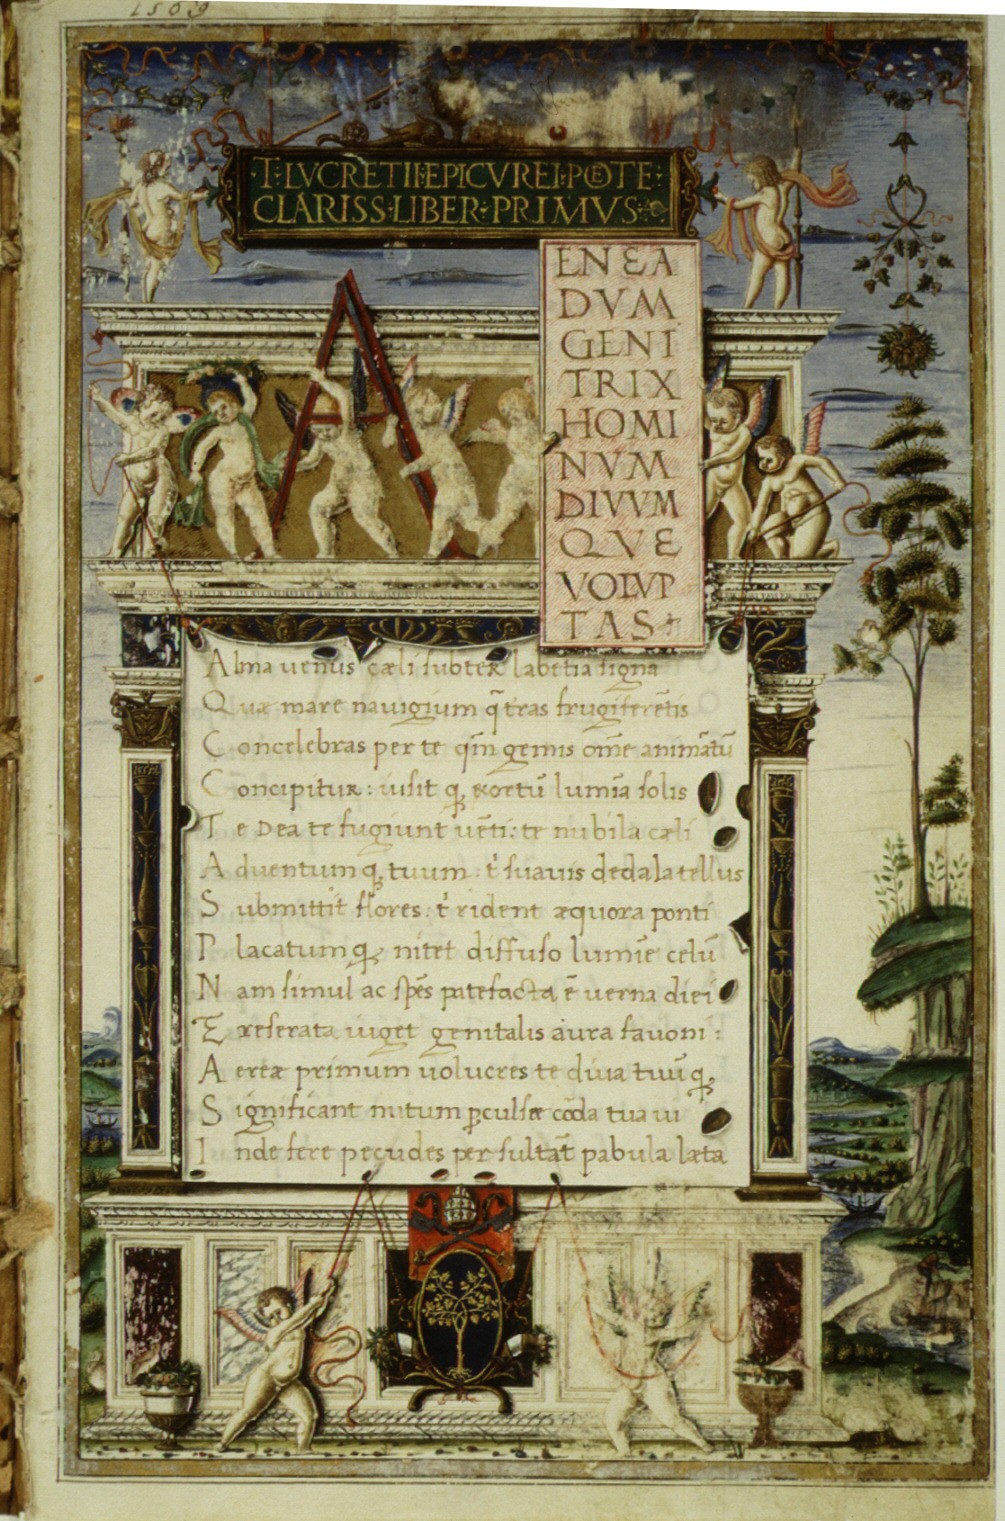 1509
·T·LVCRETII·EPICVREI·POETE·
CLARISS·LIBER·PRIMVS·
A
ENEA
DVM
GENI
TRIX
HOMI
NVM
DIVVM
QVE
VOLVP
TAS
Alma uenus cæli subter labētia signa
Quæ mare nauigium q̄ tras frugiferētis
Concelebras per te qm̄ genus om̄e animātū
Concipitur: uisit q; exortū lumīa solis
Te Dea te fugiunt uēti: te nubila cæli
Aduentumq; tuum: t' suauis dedala tellus
Submittit flores: t' rident æquora ponti
Placatumq; nitet diffuso lumīe celū
Nam simul ac spēs patefacta ē uerna diei
Ereserata uiget genitalis aura fauoni:
Aereæ primum uolucres te diua tuūq;
Significant initum ꝑculsæ cōda tua ui
Inde fere pecudes per sultāt pabula læta